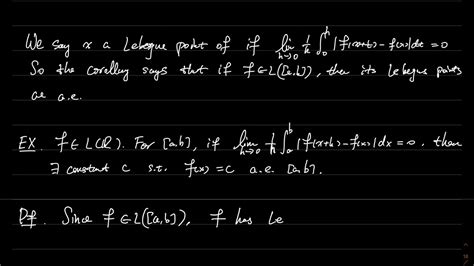 We say x a Lebegue point of if lim_{h→0} 1/h ∫_0^h |f(x+t) - f(x)| dt = 0
So the corollary says that if f ∈ L([a,b]), then its lebegue points
are a.e.
EX. f ∈ L(R). For [a,b], if lim_{h→0} 1/h ∫_a^b |f(x+h) - f(x)| dx = 0, then
∃ constant c s.t. f(x) = c a.e. [a,b].
Pf. Since f ∈ L([a,b]), f has Le